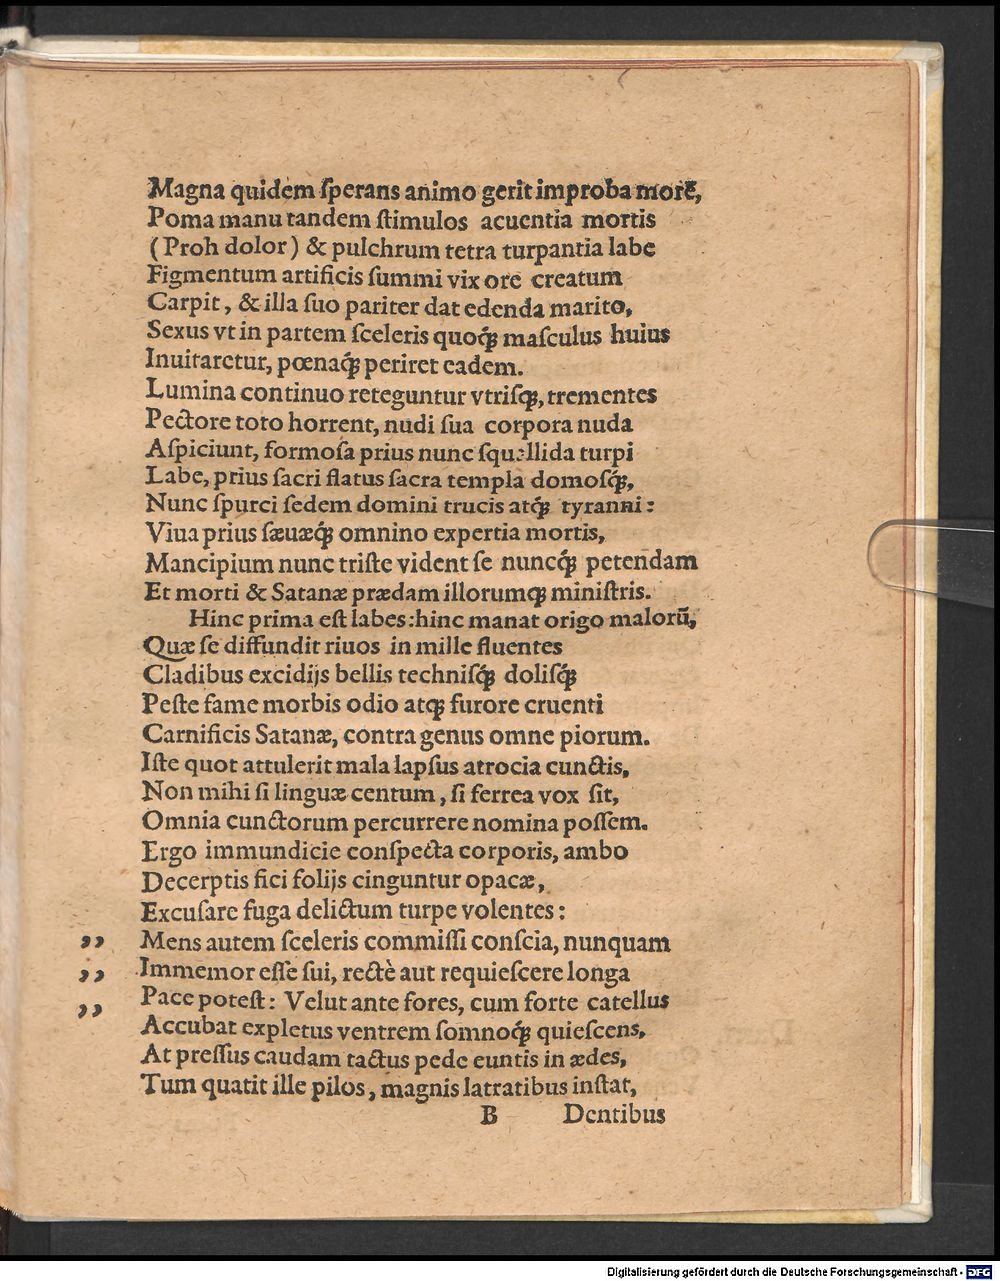 Magna quidem ſperans animo gerit improba morẽ,
Poma manu tandem ſtimulos acuentia mortis
(Proh dolor) & pulchrum tetra turpantia labe
Figmentum artificis ſummi vix ore creatum
Carpit, & illa ſuo pariter dat edenda marito,
Sexus vt in partem ſceleris quoq́; maſculus huius
Inuitaretur, pœnaq́; periret eadem.
Lumina continuo reteguntur vtriſq;, trementes
Pectore toto horrent, nudi ſua corpora nuda
Aſpiciunt, formoſa prius nunc ſquallida turpi
Labe, prius ſacri flatus ſacra templa domoſq́;,
Nunc ſpurci ſedem domini trucis atq́; tyranni:
Viua prius ſæuæq́; omnino expertia mortis,
Mancipium nunc triſte vident ſe nuncq́; petendam
Et morti & Satanæ prædam illorumq; miniſtris.
Hinc prima eſt labes: hinc manat origo malorũ,
Quæ ſe diffundit riuos in mille fluentes
Cladibus excidijs bellis techniſq́; doliſq́;
Peſte fame morbis odio atq; furore cruenti
Carnificis Satanæ, contra genus omne piorum.
Iſte quot attulerit mala lapſus atrocia cunctis,
Non mihi ſi linguæ centum, ſi ferrea vox ſit,
Omnia cunctorum percurrere nomina poſſem.
Ergo immundicie conſpecta corporis, ambo
Decerptis fici folijs cinguntur opacæ,
Excuſare fuga delictum turpe volentes:
„ Mens autem ſceleris commiſſi conſcia, nunquam
„ Immemor eſſe ſui, rectè aut requieſcere longa
„ Pace poteſt: Velut ante fores, cum forte catellus
Accubat expletus ventrem ſomnoq́; quieſcens,
At preſſus caudam tactus pede euntis in ædes,
Tum quatit ille pilos, magnis latratibus inſtat,
B Dentibus
Digitalisierung gefördert durch die Deutsche Forschungsgemeinschaft - DFG